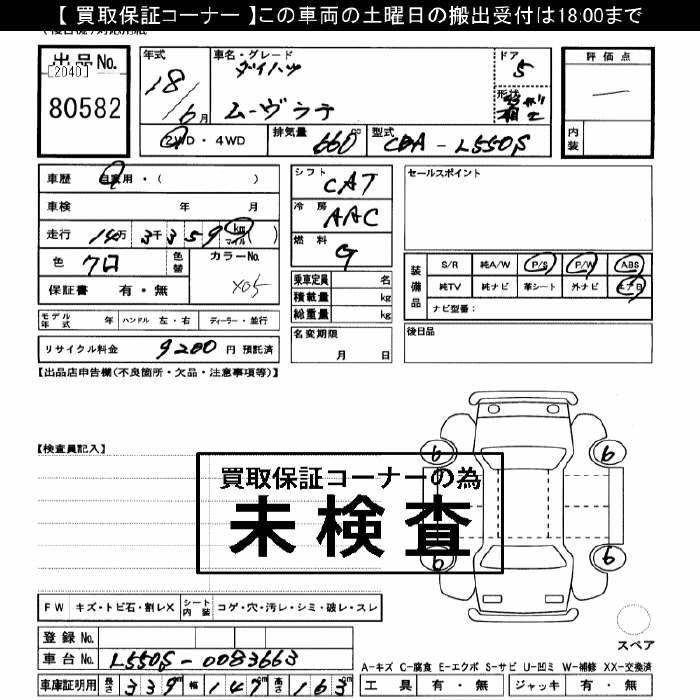 【 買取保証コーナー 】この車両の土曜日の搬出受付は18:00まで
出品No.
[2040]
80582
年式
18/6月
車名・グレード
ダイハツ
ムーヴラテ
ドア
5
形状
評価点
内装
2WD・4WD
排気量
660 cc
型式
CBA - L550S
車歴
自家用・( )
車検 年 月
走行 14万3千359 km マイル ( )
色
クロ
色替
カラーNo.
X05
保証書 有・無
シフト
CAT
冷房
AAC
燃料
G
乗車定員 名
積載量 kg
総重量 kg
セールスポイント
装備品
S/R 純A/W P/S P/W ABS
純TV 純ナビ 革シート 外ナビ エアB
ナビ型番:
モデル年式 年 ハンドル 左・右 ディーラー・並行
名変期限
月 日
後日品
リサイクル料金 9200 円 預託済
【出品店申告欄(不良箇所・欠品・注意事項等)】
【検査員記入】
6 6
買取保証コーナーの為
未検査
6 6
FW キズ・トビ石・割レX シート内装 コゲ・穴・汚レ・シミ・破レ・スレ
スペア
登録No.
車台No. L550S-0083663
A-キズ C-腐食 E-エクボ S-サビ U-凹ミ W-補修 XX-交換済
車庫証明用 長さ 339cm 幅 147cm 高さ 163cm
工具 有・無 ジャッキ 有・無